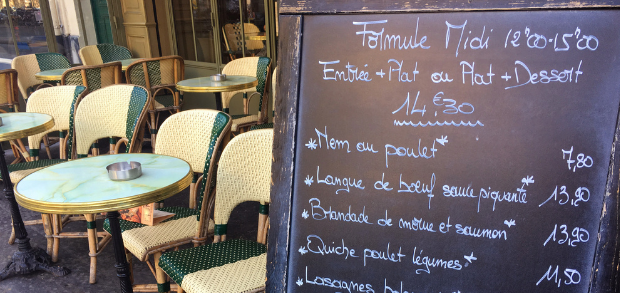 Formule Midi 12h00-15h00
Entrée + Plat ou Plat + Dessert
14€30
*Nem au poulet* 7,80
*Langue de bœuf sauce piquante* 13,90
*Brandade de morue et saumon* 13,90
*Quiche poulet légumes* 11,50
*Lasagnes